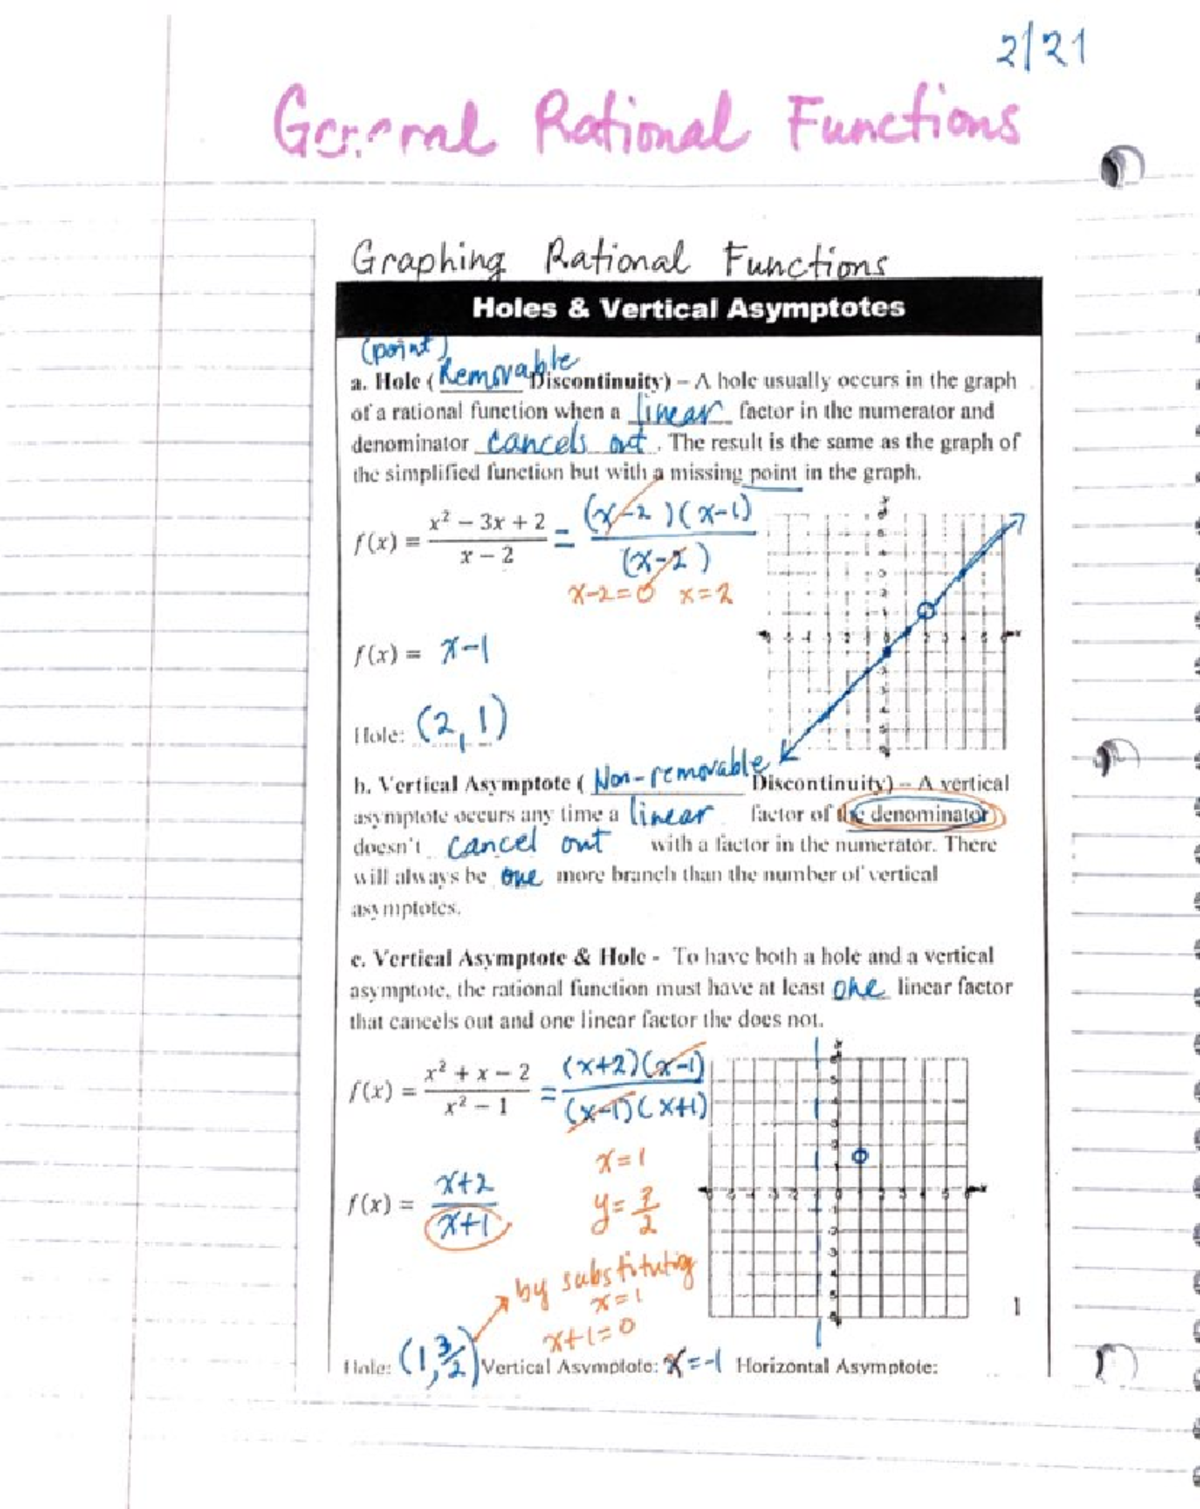 2/21
General Rational Functions
Graphing Rational Functions
Holes & Vertical Asymptotes
(point)
a. Hole (Removable Discontinuity) – A hole usually occurs in the graph
of a rational function when a linear factor in the numerator and
denominator cancels out. The result is the same as the graph of
the simplified function but with a missing point in the graph.
f(x) = x² − 3x + 2 / x − 2 = (x−2)(x−1) / (x−2)
x−2=0 x=2
f(x) = x−1
Hole: (2, 1)
b. Vertical Asymptote (Non-removable Discontinuity) – A vertical
asymptote occurs any time a linear factor of the denominator
doesn't cancel out with a factor in the numerator. There
will always be one more branch than the number of vertical
asymptotes.
c. Vertical Asymptote & Hole - To have both a hole and a vertical
asymptote, the rational function must have at least one linear factor
that cancels out and one linear factor the does not.
f(x) = x² + x − 2 / x² − 1 = (x+2)(x−1) / (x−1)(x+1)
x=1
f(x) = x+2 / x+1
y= 3/2
by substituting
x=1
x+1=0
1
Hole: (1, 3/2) Vertical Asymptote: x=-1 Horizontal Asymptote: